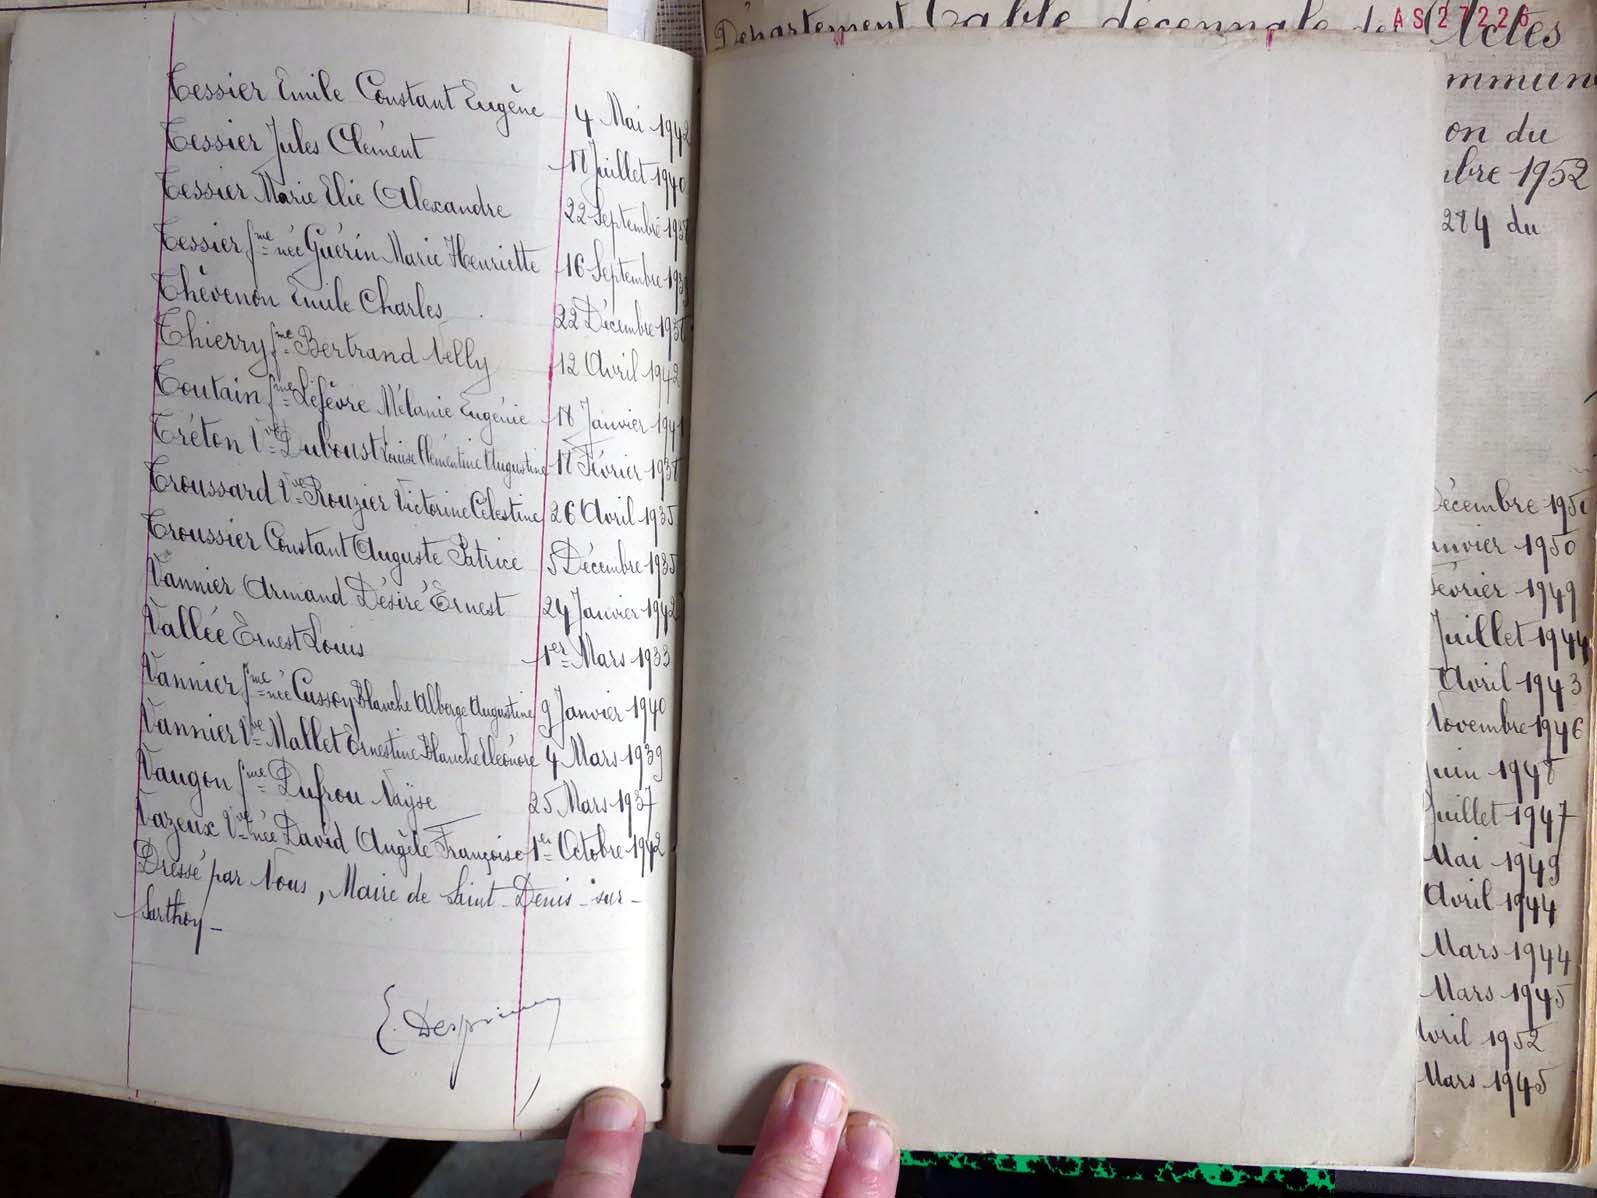 Tessier Emile Constant Eugène 4 Mai 1942
Tessier Jules Clément 18 Juillet 1940
Tessier Marie Elie Alexandre 22 Septembre
Tessier fme née Guérin Marie Henriette 16 Septembre
Thévenon Emile Charles 22 Décembre
Thierry fme Bertrand Nelly 12 Avril 1942
Toutain fme Lefèvre Mélanie Eugénie 18 Janvier 1941
Tréton Vve Duboust Louise Clémentine Augustine 18 Février
Troussard Vve Rouzier Victorine Célestine 26 Avril 1935
Troussier Constant Auguste Patrice 5 Décembre 1935
Vannier Armand Désiré Ernest 24 Janvier 1942
Vallée Ernest Louis 1er Mars 1933
Vannier fme née Blanche Alberge Augustine 9 Janvier 1940
Vannier Vve Mallet Ernestine Blanche Eléonore 4 Mars 1939
Vaugon fme Dufrou 25 Mars 1937
Vazeux Vve née David Angèle Françoise 1er Octobre 1942
Dressé par Nous, Maire de Saint-Denis-sur-
Sarthon-
Département Table décennale des Actes
AS27226
mmun
on du
mbre 1952
284 du
Décembre 1950
anvier 1950
Février 1949
Juillet 1944
Avril 1943
Novembre 1946
Juin 1948
Juillet 1947
Mai 1949
Avril 1944
Mars 1944
Mars 1945
Avril 1952
Mars 1945